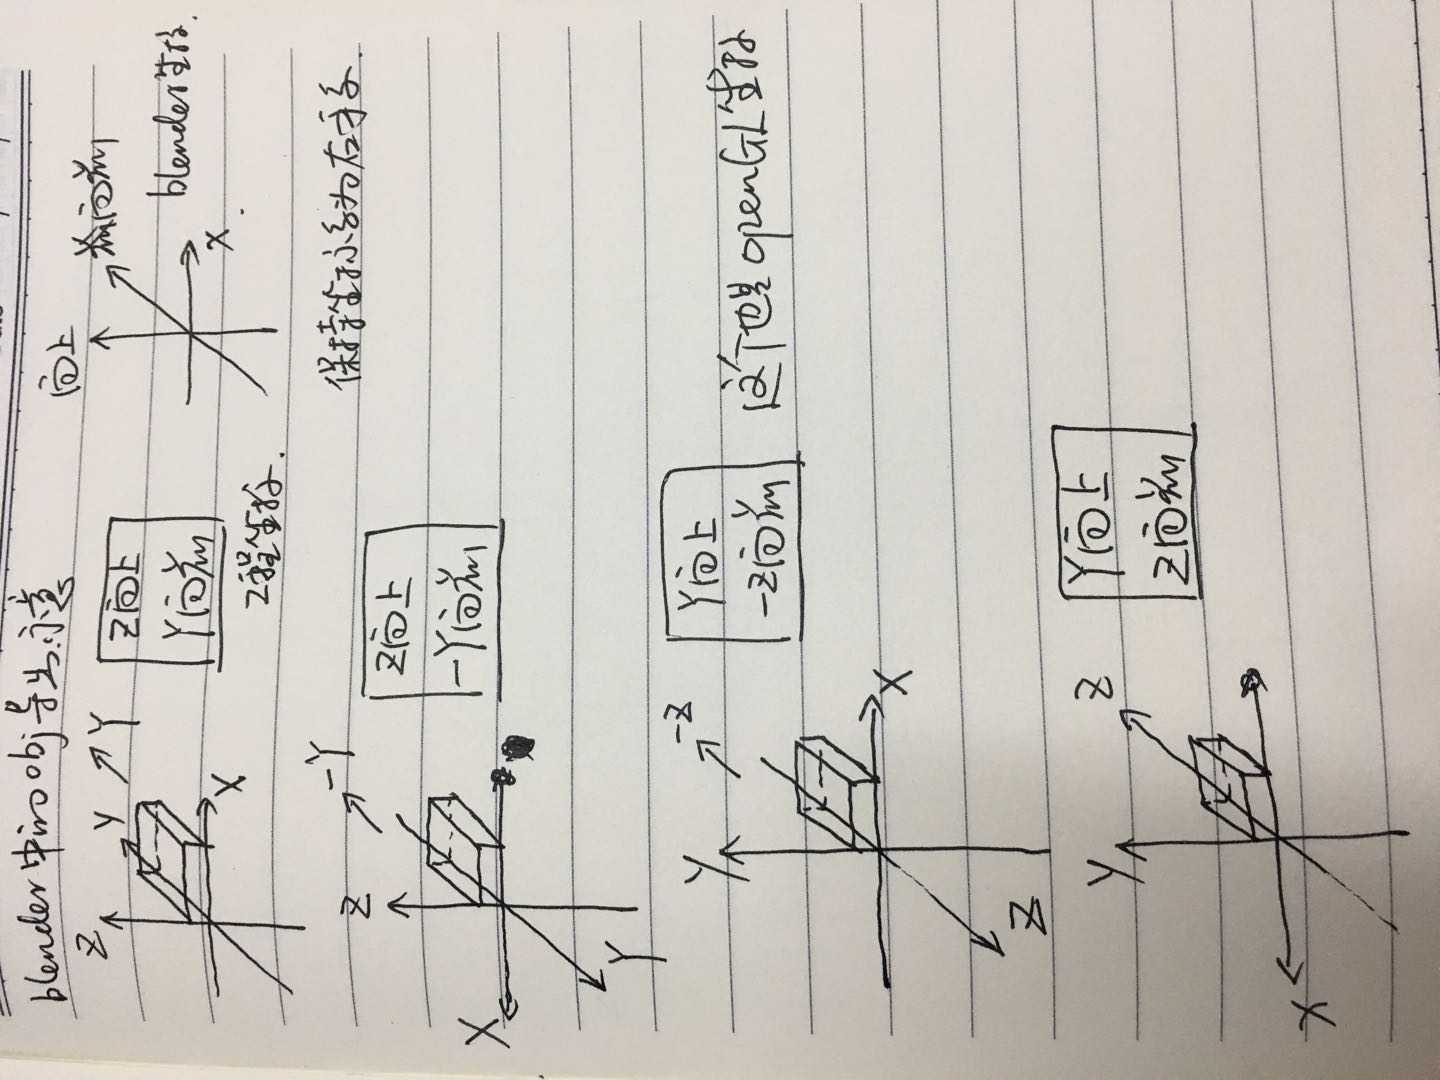 blender中的obj导出示意
向上
向前
X
blender坐标.
Z
Y
Y
X
Z向上
Y向前
工程坐标.
保持坐标系为右手系.
Z
-Y
X
Y
Z向上
-Y向前
Y
-Z
X
Z
Y向上
-Z向前
这个也是openGL坐标
Y
Z
X
Y向上
Z向前